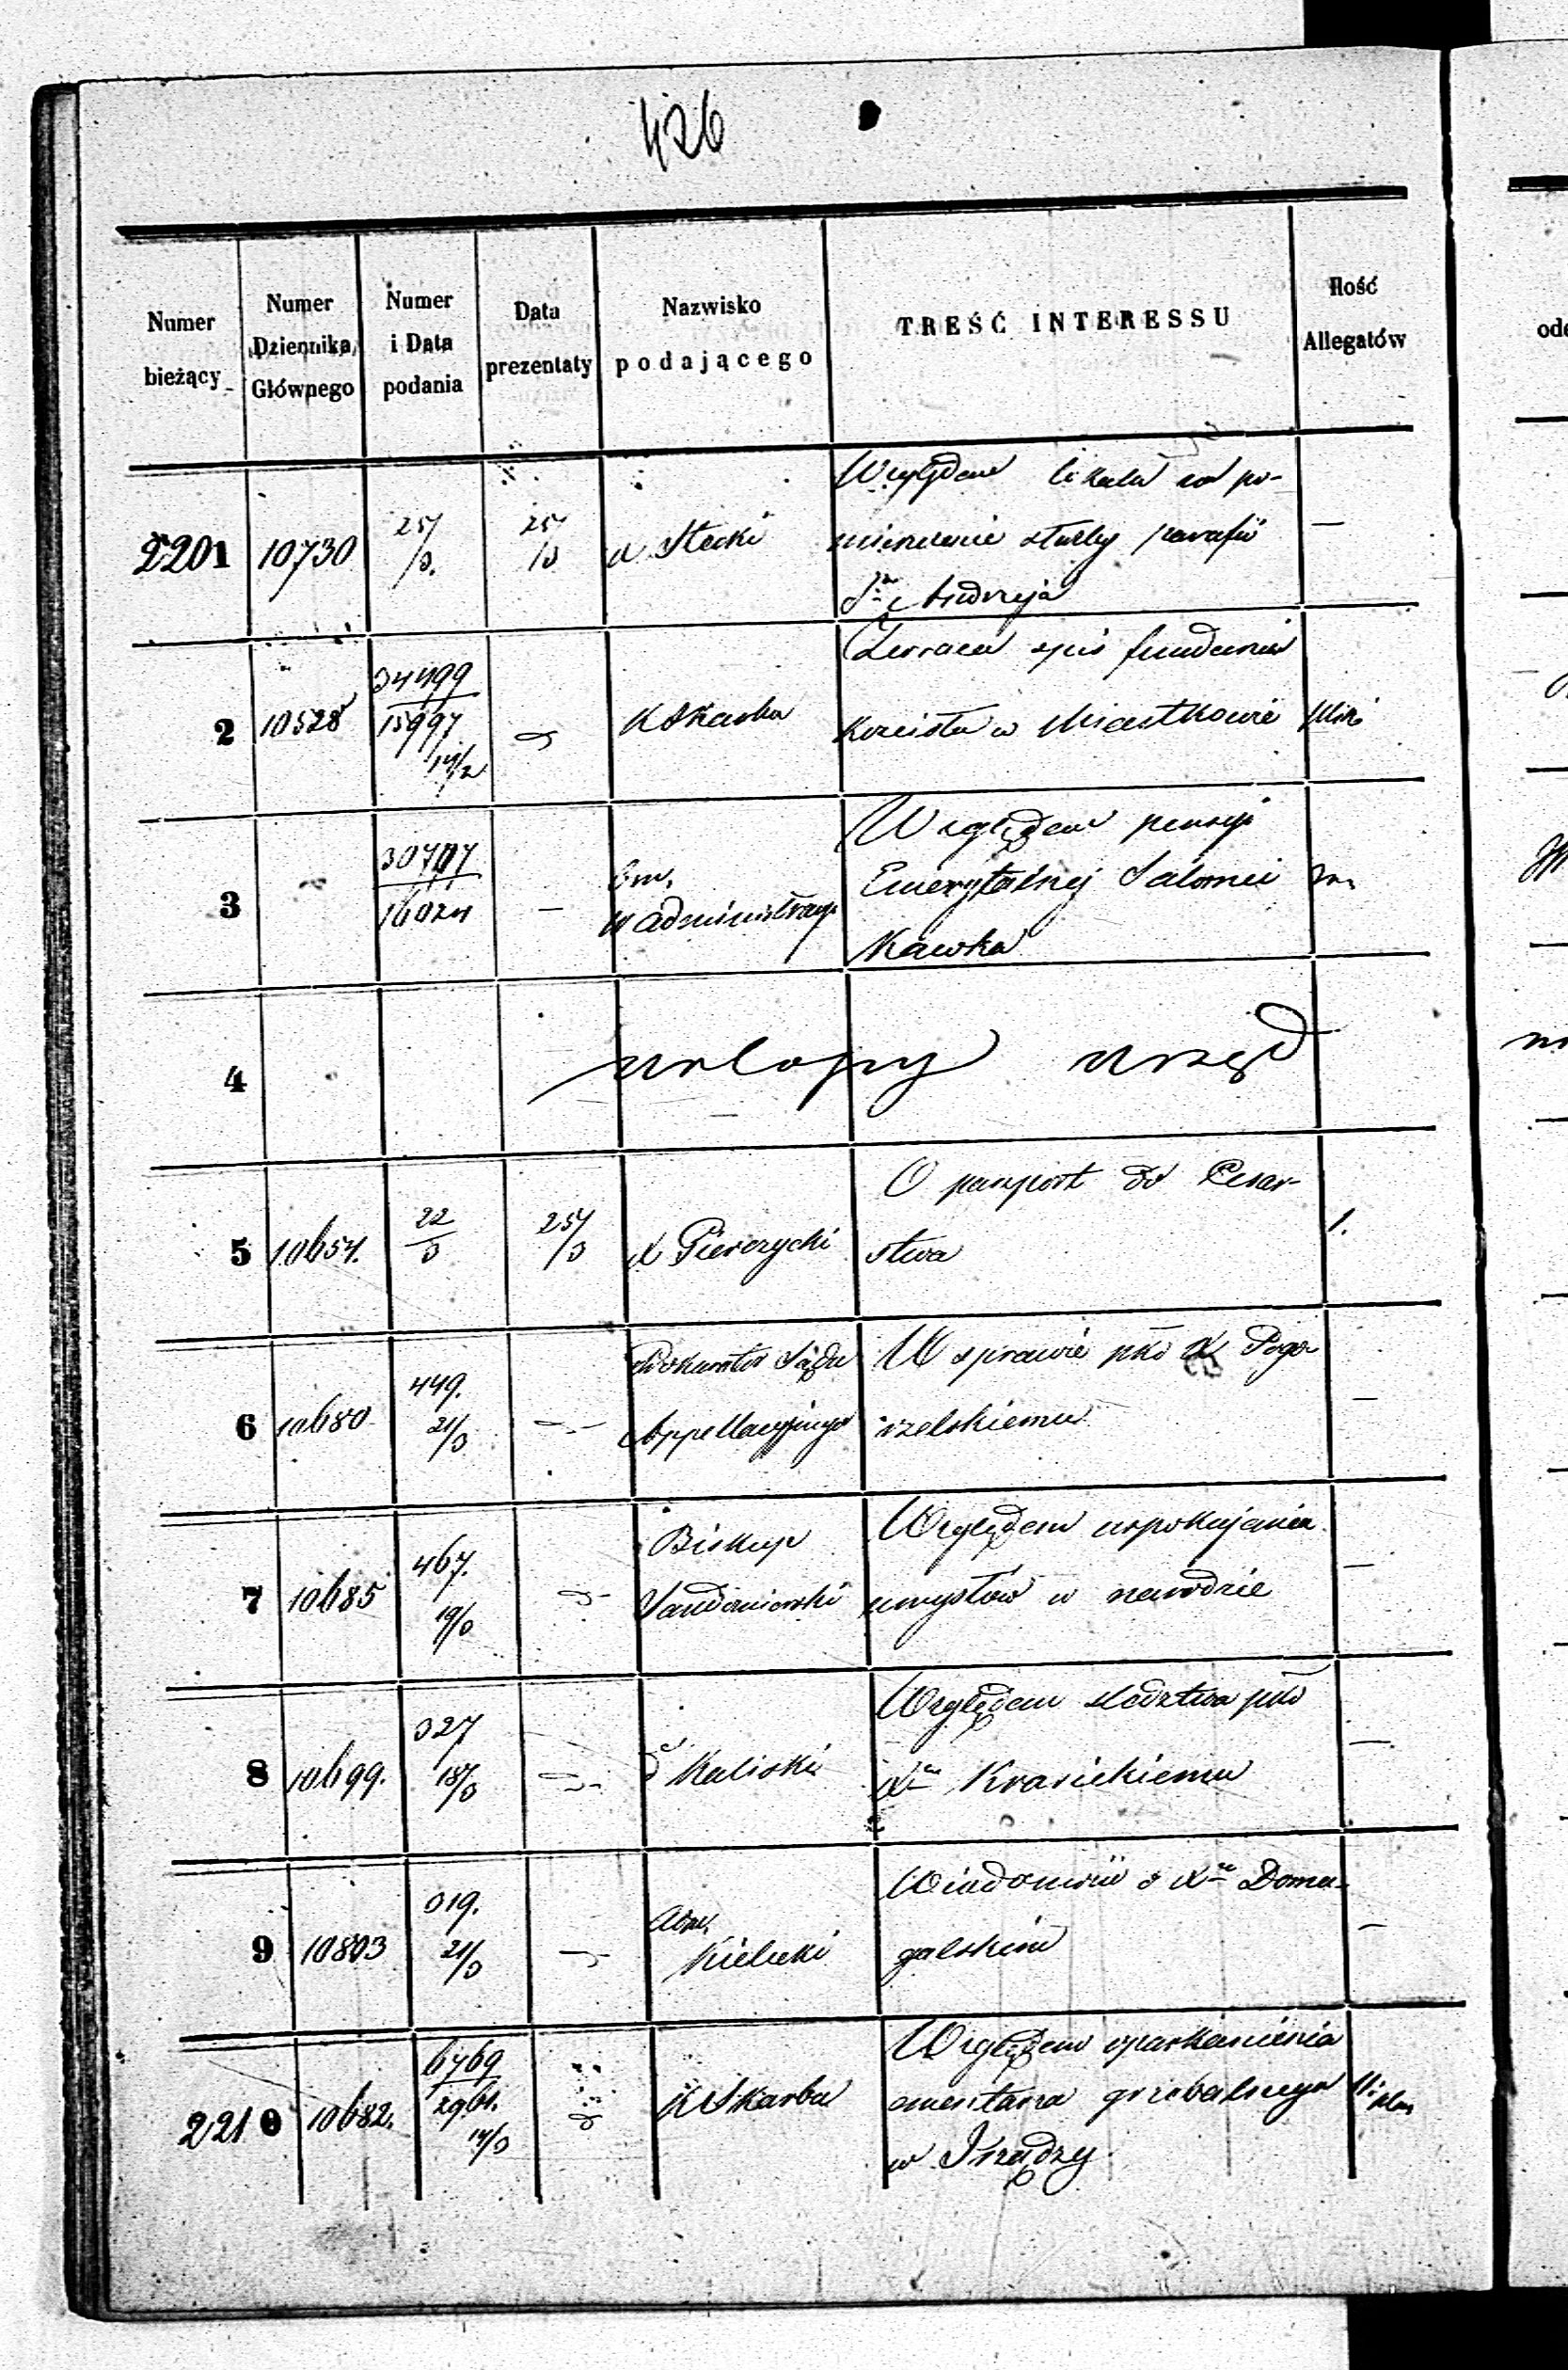 426
Numer bieżący
Numer Dziennika Głównego
Numer i Data podania
Data prezentaty
Nazwisko podającego
TREŚĆ INTERESSU
Ilość Allegatów
2201 10730 25/3. 25/3 X Stecki Względem lokalu na po-
mieszczenie służby parafii
Sgo Andrzeja —
2 10528 34499/15997 14/2 K Skarbu Zwraca spis fundamis
kościoła w Miastkowie
3 30707/16024 — W administracyi Względem pensyi
Emerytalnej Salomei
Kawka
4 urlopy urzęd
5 10654. 22/3 25/3 X Pierczycki O paszport do Cesar-
stwa 1.
6 10680 449. 21/3 Prokurator Sądu Appellacyjnego W sprawie pko X Pogo
rzelskiemu —
7 10685 467. 19/3 Biskup Sandomierski Względem uspokajania
umysłów w narodzie —
8 10699. 327 18/3 do Kaliski Względem śledztwa pko
Xu Krasickiemu —
9 10803 319. 21/3 Adm. Kielecki Wiadomość o Xu Doma-
galskim —
2210 10682. 6769/2961. 14/3 K Skarbu Względem oparkanienia
cmentarza grzebalnego
w Irządzy